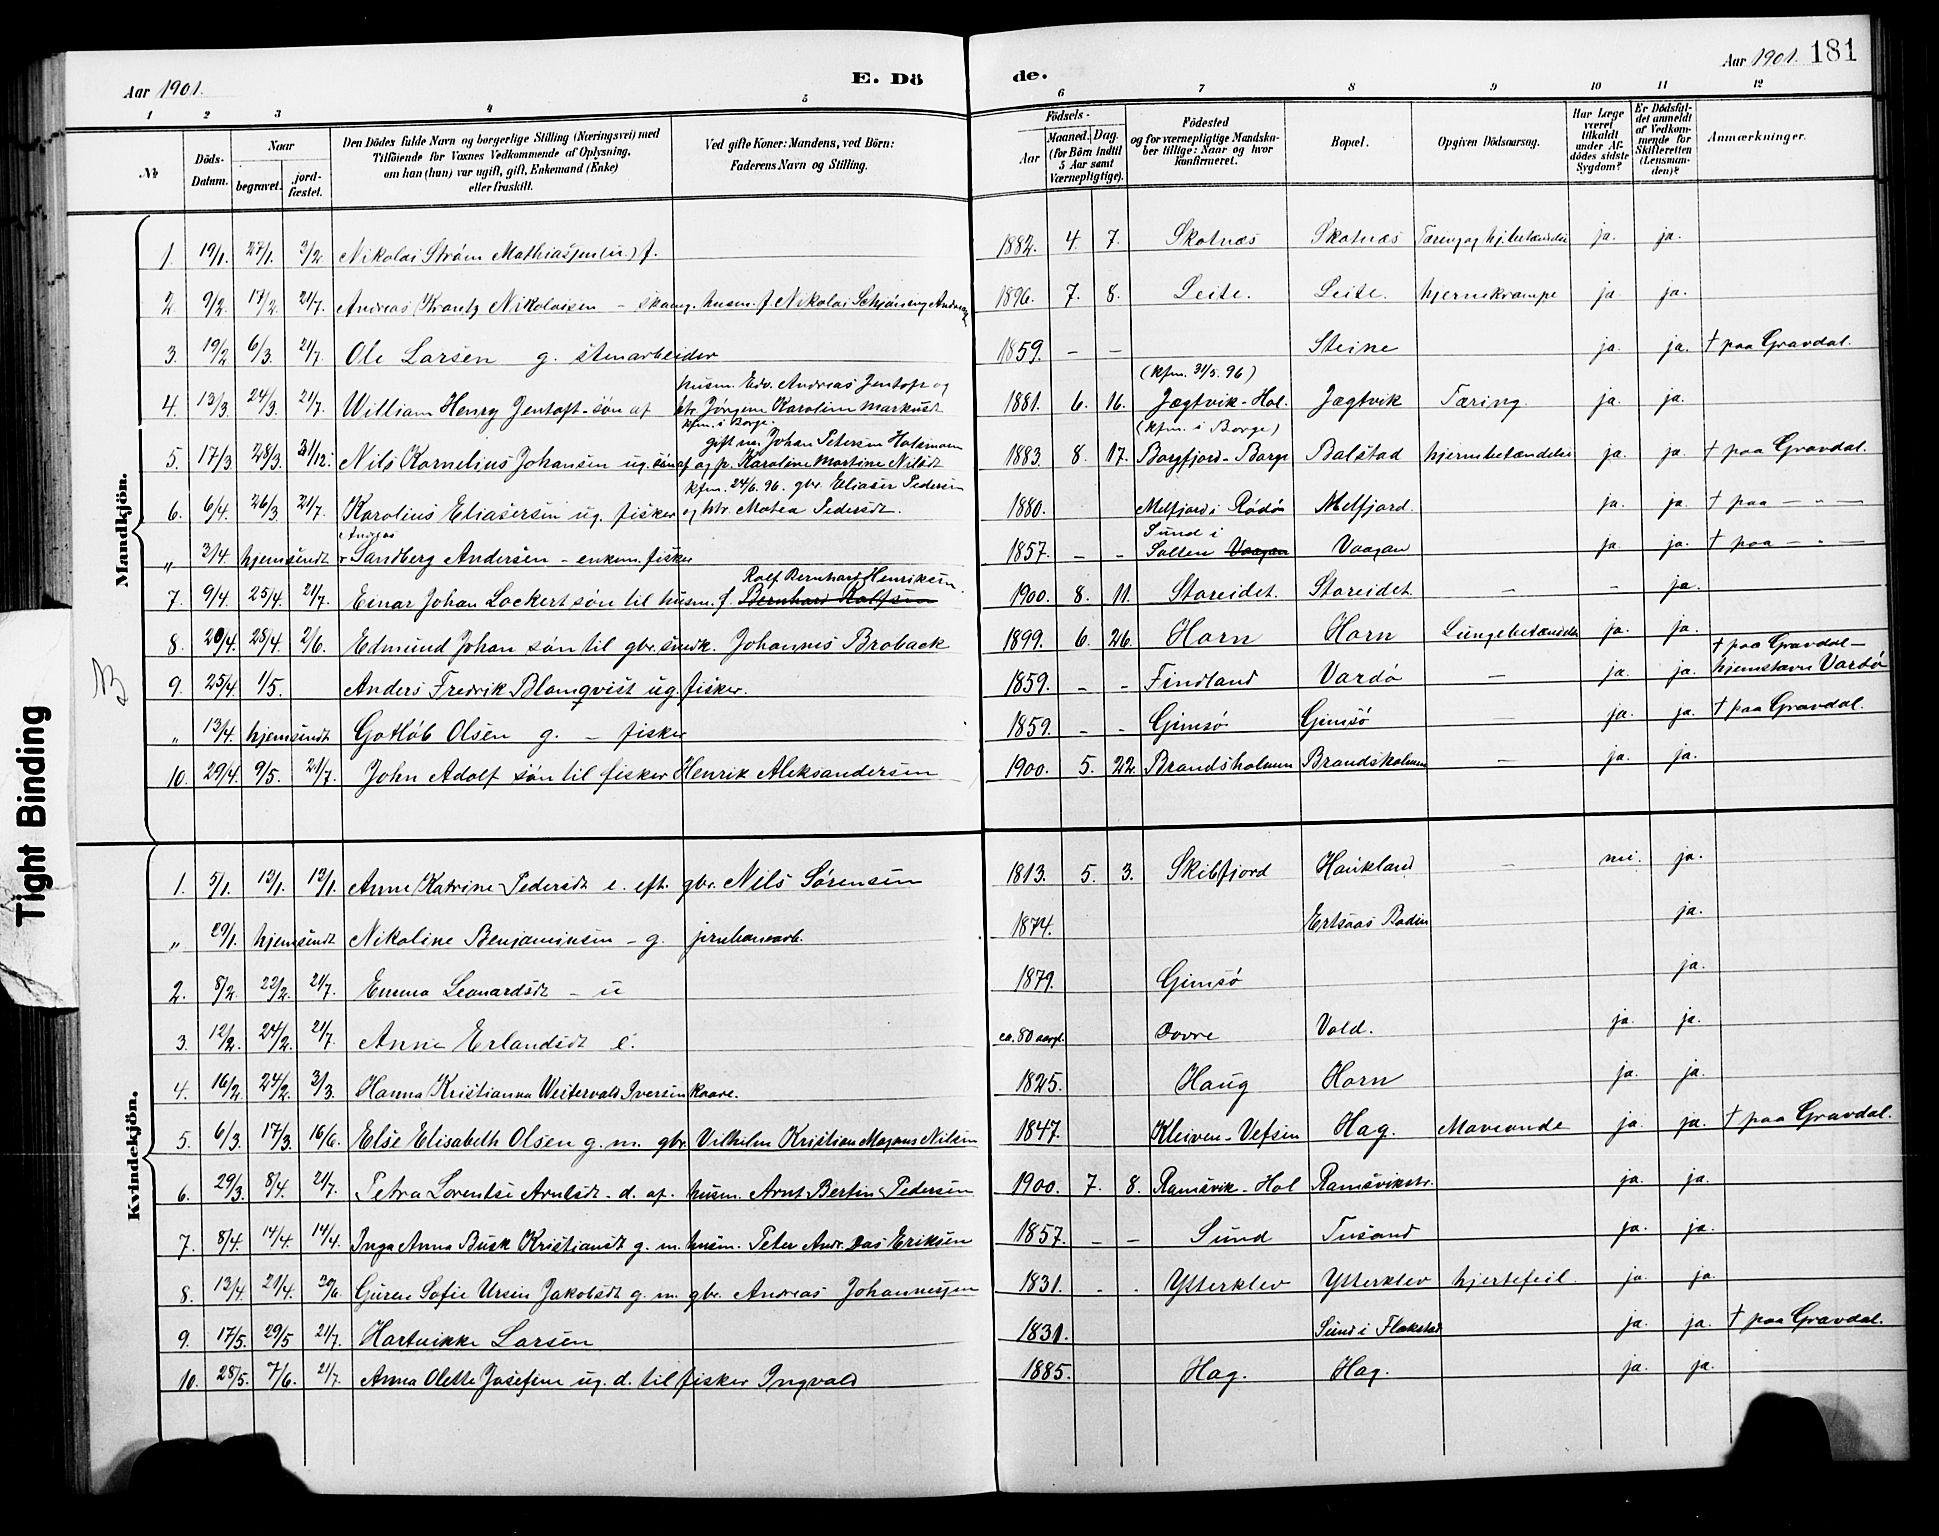 Aar 1901.
E. Dö
de.
Aar 1901. 181
1 2 3 4 5 6 7 8 9 10 11 12
№
Döds-Datum.
Naar
begravet.
jord-fæstet.
Den Dödes fulde Navn og borgerlige Stilling (Næringsvei) med
Tilföiende for Vaxnes Vedkommende af Oplysning,
om han (hun) var ugift, gift, Enkemand (Enke)
eller fraskilt.
Ved gifte Koner: Mandens, ved Börn:
Faderens Navn og Stilling.
Födsels-
Aar
Maaned. Dag.
(for Börn indtil
5 Aar samt
Værnepligtige).
Födested
og for værnepligtige Mandska-
ber tillige: Naar og hvor
konfirmeret.
Bopæl.
Opgiven Dödsaarsag.
Har Læge
været
tilkaldt
under Af-
dödes sidste
Sygdom?
Er Dödsfal-
det anmeldt
af Vedkom-
mende for
Skifteretten
(Lensman-
den)?
Anmærkninger.
Mandkjön.
1. 19/1. 27/1. 3/2. Nikolai Strøm Mathias f. 1882. 4. 7. Skotnæs Skotnæs Tæring og hj.betændelse ja. ja.
2. 9/2. 17/2. 21/7. Andreas Krantz Nikolaisen – husm. f. Nikolai Schjöning 1896. 7. 8. Leite. Leite. hjernekrampe ja ja.
3. 19/2 6/3. 21/7. Ole Larsen g. stenarbeider 1859. – – Steine ja. ja. † paa Gravdal.
husm. Edv. Andreas Jentoft og (kfm. 31/5. 96)
4. 13/3. 24/3. 21/7. William Henry Jentoft – søn af htr. Jörgine Karoline Markusdt 1881. 6. 16. Jægtvik – Hol. Jægtvik Tæring. ja. ja.
kfm. i Borge. (kfm. i Borge)
gift m. Johan Petersen
5. 17/3. 28/3. 31/12. Nils Kornelius Johansen ug. søn af og p. Karoline Martine Nilsdt 1883. 8. 17. Borgfjord – Borge Balstad hjernebetændelse ja. ja. † paa Gravdal.
kfm. 24/6. 96. gbr. Eliaser Pedersen
6. 6/4. 26/3. 21/7. Karolius Eliasersen ug. fisker og htr. Matea Pedersdt. 1880. Melfjord i Rødø Melfjord. ja. ja. † paa – „ –
Andreas Sund i
„ 3/4. hjemsendt Sandberg Andersen – enkem. fisker 1857. – – Salten Vaagan Vaagan ja. ja. † paa – „ –
Rolf Bernhard Henriksen
7. 9/4. 25/4. 21/7. Einar Johan Lockert søn til husm. f. Bernhard Rolfsen 1900. 8. 11. Storeidet. Storeidet. – – ja.
8. 20/4. 28/4. 2/6. Edmund Johan søn til gbr. smedk. Johannes Broback 1899. 6. 26. Horn Horn Lungebetændelse ja. ja.
9. 25/4. 1/5. Anders Fredrik Blomqvist ug. fisker. 1859. – – Findland Vardø – ja. ja. † paa Gravdal – hjemstavn Vardø
„ 13/4. hjemsendt Gotlöb Olsen g. – fisker 1859. – – Gimsø Gimsø – ja. ja. † paa Gravdal.
10. 29/4. 9/5. 21/7. John Adolf søn til fisker Henrik Aleksandersen 1900. 5. 22. Brandsholmen Brandsholmen – ja. ja.
Tight Binding
Kvindekjön.
1. 5/1. 13/1. 13/1. Anne Katrine Pedersdt e. eft. gbr. Nils Sørensen 1813. 5. 3. Skibfjord Haukland – nei. ja.
„ 29/1. hjemsendt Nikoline Benjaminsen – g. jernbanearb. 1874. Ertsaas Bodin ja.
2. 8/2. 22/2. 21/7. Emma Leonardsdt – u 1879. Gimsø ja.
3. 12/2. 24/2. 21/7. Anne Erlandsdt e. ca. 80 aar gl. Dovre Vold. ja. ja.
4. 16/2. 24/2. 3/3. Hanna Kristianna Westervald Iversen kaare. 1825. Haug Horn ja. ja.
5. 6/3. 17/3. 16/6. Else Elisabeth Olsen g. m. gbr. Vilhelm Kristian Magnus Nilsen 1847. Kleiven – Vefsen Hag. Maveonde ja. ja. † paa Gravdal.
6. 29/3. 8/4. 21/7. Petra Lorentse Arntsdt – d. af. husm. Arnt Bertin Pedersen 1900. 7. 8. Ramsvik – Hol Ramsvikstr. ja. ja.
7. 8/4. 14/4. 14/4. Inga Anna Busk Kristiansdt g. m. husm. Peter Andr. Das Eriksen 1857. – – Sund Tusand ja. ja.
8. 13/4. 21/4. 30/6. Gurene Sofie Ursin Jakobsdt g. m. gbr. Andreas Johannessen 1831. – – Ytterklev Ytterklev hjertefeil. ja. ja.
9. 17/5. 29/5 21/7. Hartvikke Larsen 1831. Sund i Flakstad ja. ja. † paa Gravdal.
10. 28/5. 7/6. 21/7. Anna Olette Josefine ug. d. til fisker Ingvald 1885. Hag. Hag. ja. ja.